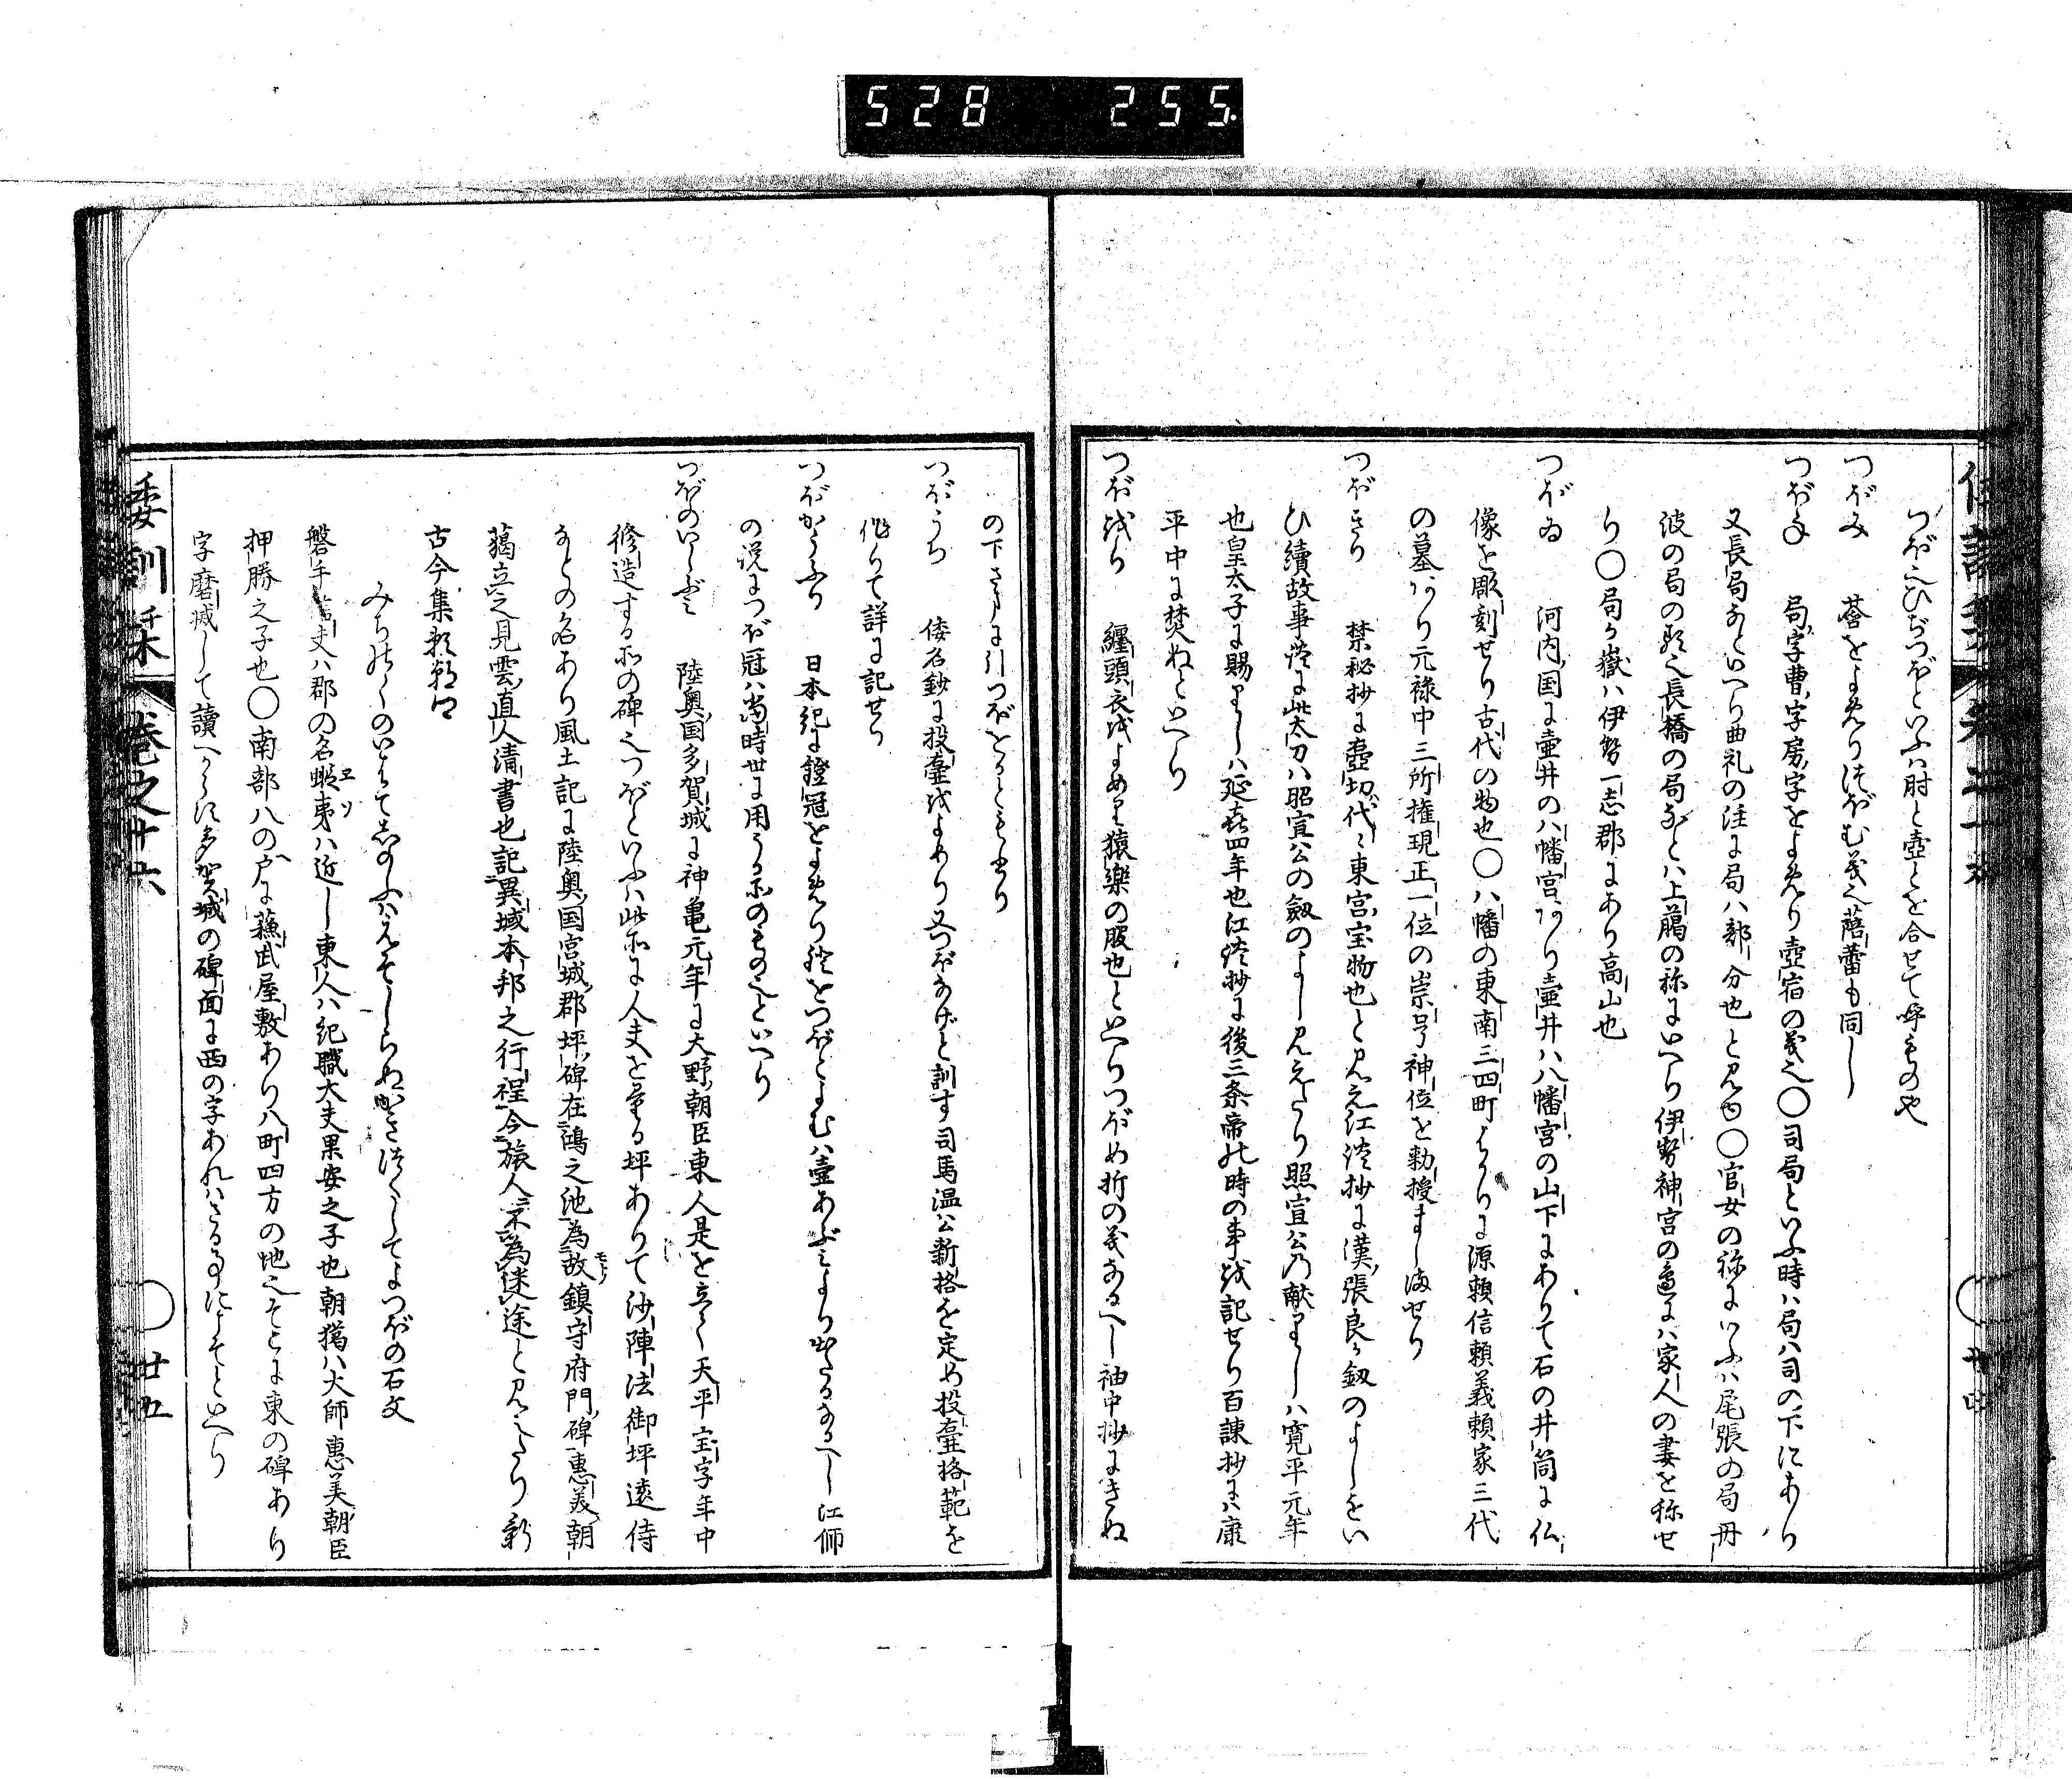 528 255
つぼ也ひぢつぼといふハ肘と壺とを合せて呼もの也
つぼみ 蒼をよめりつぼむ義也蓓蕾も同し
つぼね 局字曹字房字をよめり壺宿の義也〇司局といふ時ハ局ハ司の下にあり
又長局なといへり曲礼の注に局ハ部分也と見ゆ〇官女の称にいふハ尾張の局丹
波の局の類也長橋の局などハ上臈の称にいへり伊勢神宮の邊にハ家人の妻を称せ
り〇局ヶ嶽ハ伊勢一志郡にあり高山也
つぼゐ 河内国に壷井の八幡宮あり壷井ハ八幡宮の山下にありて石の井筒に仏
像を彫刻せり古代の物也〇八幡の東南三四町はかりに源頼信頼義頼家三代
の墓あり元禄中三所権現正一位の崇号神位を勅授まし満せり
つぼきり 禁秘抄に壺切代々東宮宝物也と見え江談抄に漢張良ヶ釼のよしをい
ひ續故事談に此太刀ハ昭宣公の劔のよし見えたり照宣公乃献りしハ寛平元年
也皇太子に賜りしハ延㐂四年也江談抄に後三条帝の時の事を記せり百諌抄にハ康
平中に焚ぬといへり
つぼをり 纒頭衣をよめり猿樂の服也といへりつぼめ折の義なるへし袖中抄にきぬ
倭訓栞 巻之十六 廿五
の下さまに引つぼをるとも出り
つぼうち 倭名鈔に投壷をよめり又つぼなげと訓す司馬温公新格を定め投壷格範を
作りて詳に記せり
つぼかうふり 日本紀に鐙冠をよめり鐙をつぼとよむハ壷あぶミより出たるなるへし江師
の説につぼ冠ハ當時世に用うる所のもの也といへり
つぼのいしぶミ 陸奥国多賀城に神亀元年に大野朝臣東人是を立て天平宝字年中
修造する所の碑也つぼといふハ此所に人夫を量る坪ありて沙陣法御坪遠侍
なとの名あり風土記に陸奥国宮城郡坪碑在鴻之池為故鎮守府門碑惠美朝
獦立之見雲真人清書也記異域本邦之行程令旅人不為迷途と見えたり新
古今集頼朝卿
みちのくのいはて志のふハえそしらぬかきつくしてよつぼの石文
磐手信夫ハ郡の名蝦夷ハ近し東人ハ紀職大夫果安之子也朝獦ハ大師惠美朝臣
押勝之子也〇南部八の戸に蘓武屋敷あり八町四方の地也そこに東の碑あり
字磨滅して讀へからす多賀城の碑面に西の字あれハさる事にこそといへり